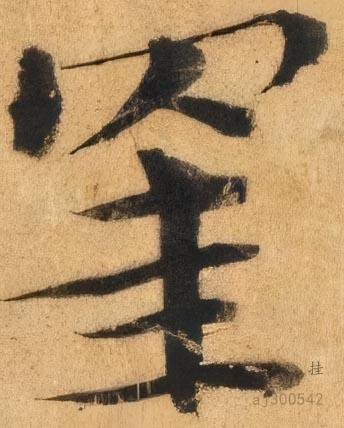 罣
挂
aj300542